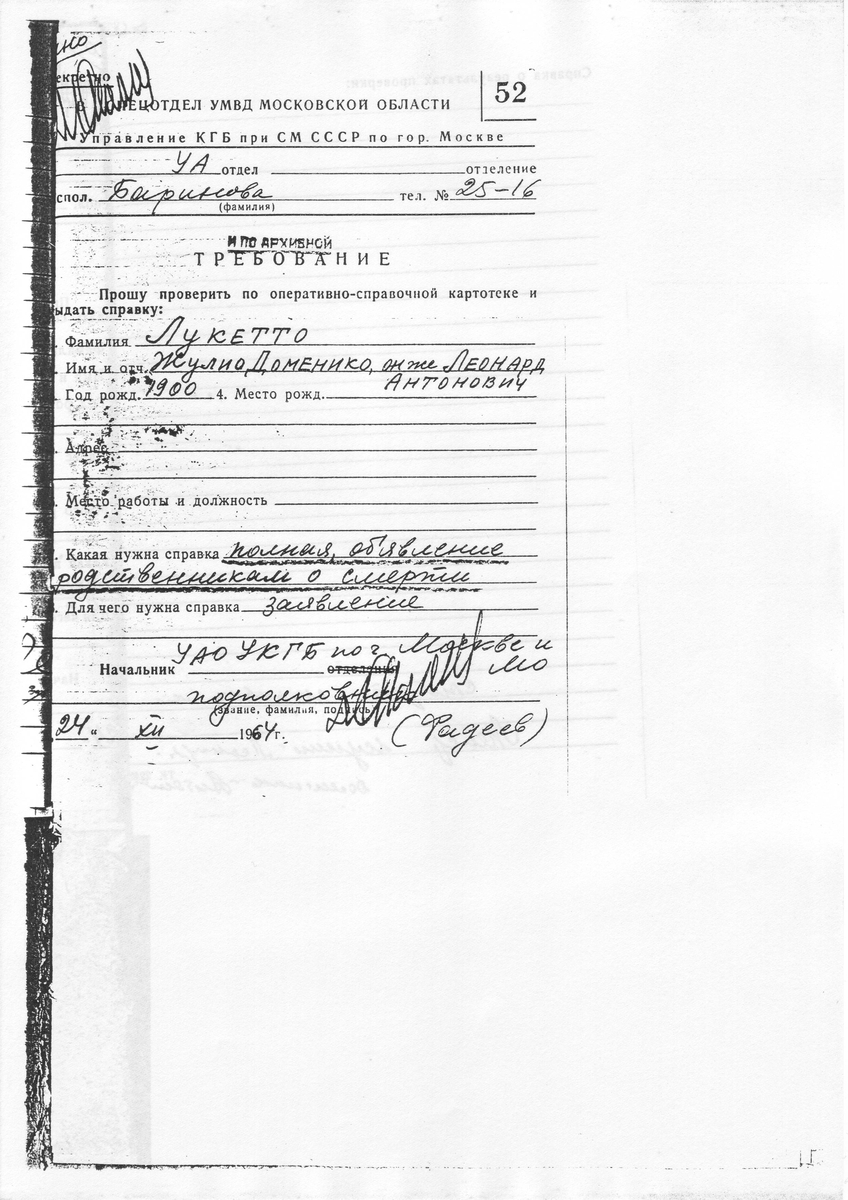 екретно
В СПЕЦОТДЕЛ УМВД МОСКОВСКОЙ ОБЛАСТИ
52
Управление КГБ при СМ СССР по гор. Москве
УА отдел отделение
спол. Баринова тел. № 25-16
(фамилия)
И ПО АРХИВНОЙ
ТРЕБОВАНИЕ
Прошу проверить по оперативно-справочной картотеке и
ыдать справку:
Фамилия ЛУКЕТТО
. Имя и отч. Жулио Доменико, он же ЛЕОНАРД
АНТОНОВИЧ
Год рожд. 1900 4. Место рожд.
. Адрес
. Место работы и должность
. Какая нужна справка полная, объявление
родственникам о смерти
. Для чего нужна справка заявление
УАО УКГБ по г. Москве и
Начальник отделения МО
подполковник
(звание, фамилия, подпись)
24 " XII 1964 г. (Фадеев)